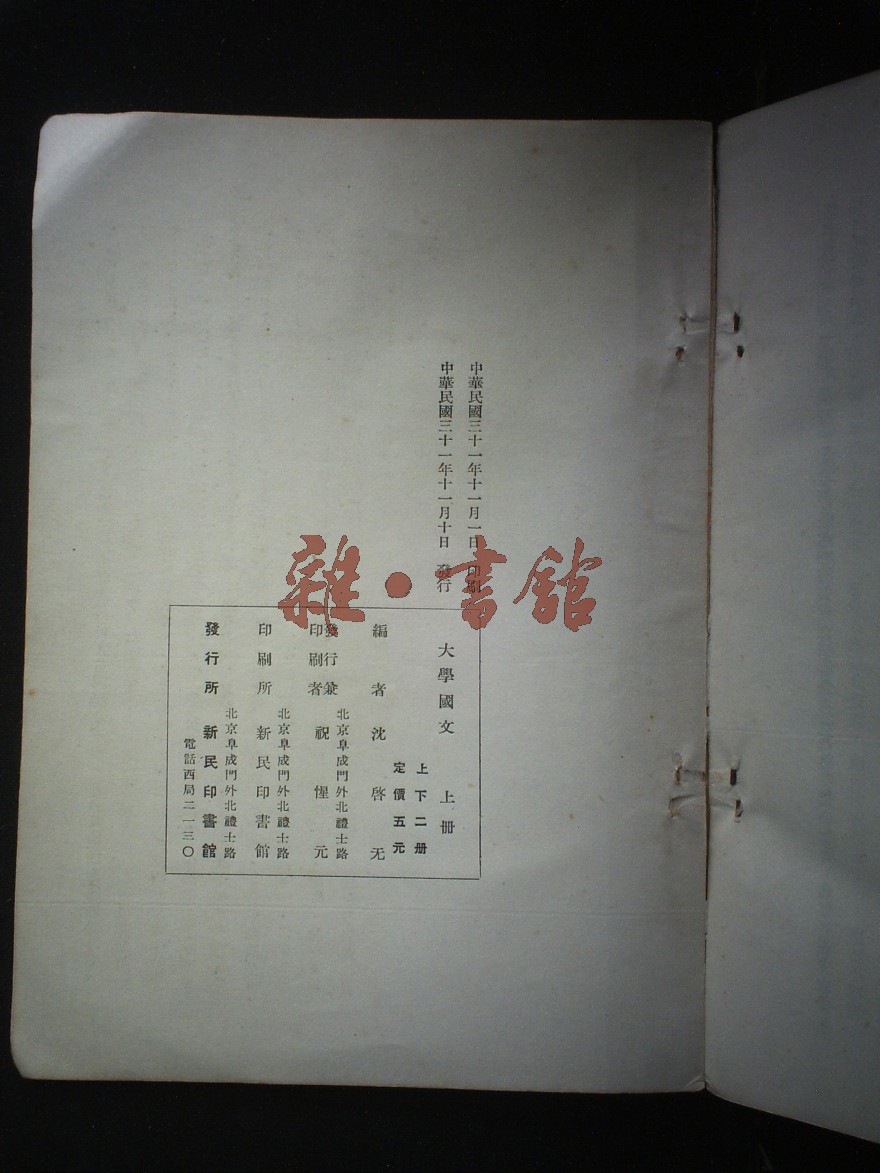 中華民國三十一年十一月一日 印刷
中華民國三十一年十一月十日 發行
大學國文 上册
上下二册
定價五元
編者 沈啓无
北京阜成門外北禮士路
發行兼印刷者 祝惺元
北京阜成門外北禮士路
印刷所 新民印書館
北京阜成門外北禮士路
發行所 新民印書館
電話西局二一三〇
雜·書館